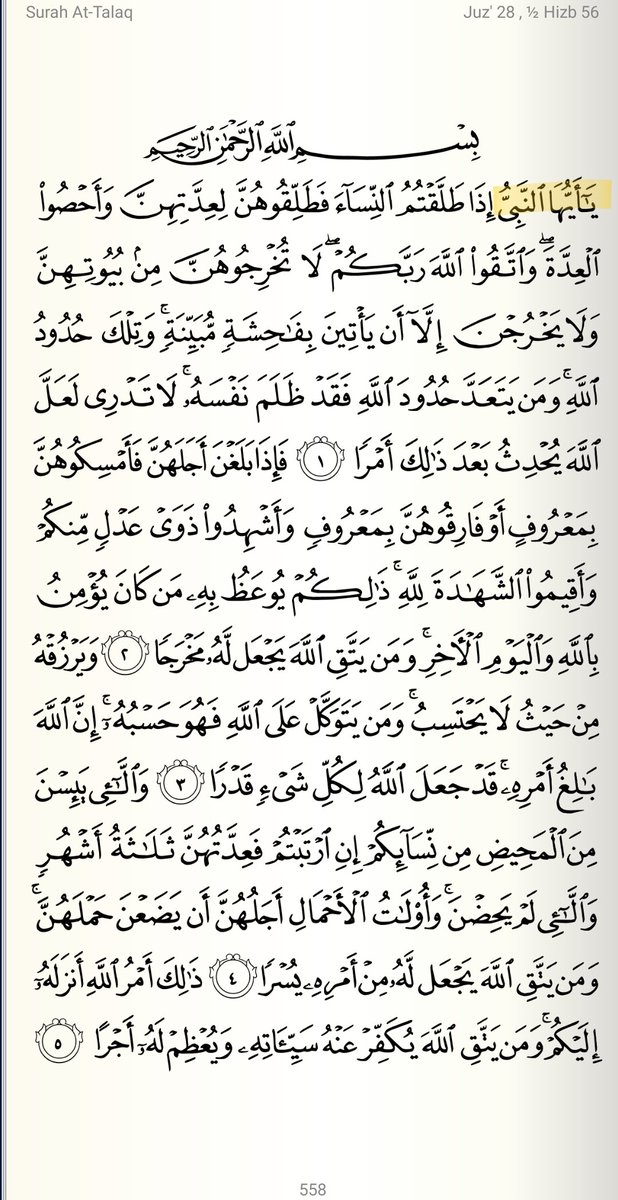 Surah At-Talaq
Juz' 28 , ½ Hizb 56
بِسْمِ ٱللَّهِ ٱلرَّحْمَٰنِ ٱلرَّحِيمِ
يَـٰٓأَيُّهَا ٱلنَّبِىُّ إِذَا طَلَّقْتُمُ ٱلنِّسَآءَ فَطَلِّقُوهُنَّ لِعِدَّتِهِنَّ وَأَحْصُوا۟
ٱلْعِدَّةَ ۖ وَٱتَّقُوا۟ ٱللَّهَ رَبَّكُمْ ۖ لَا تُخْرِجُوهُنَّ مِنۢ بُيُوتِهِنَّ
وَلَا يَخْرُجْنَ إِلَّآ أَن يَأْتِينَ بِفَـٰحِشَةٍ مُّبَيِّنَةٍ ۚ وَتِلْكَ حُدُودُ
ٱللَّهِ ۚ وَمَن يَتَعَدَّ حُدُودَ ٱللَّهِ فَقَدْ ظَلَمَ نَفْسَهُۥ ۚ لَا تَدْرِى لَعَلَّ
ٱللَّهَ يُحْدِثُ بَعْدَ ذَٰلِكَ أَمْرًا ١ فَإِذَا بَلَغْنَ أَجَلَهُنَّ فَأَمْسِكُوهُنَّ
بِمَعْرُوفٍ أَوْ فَارِقُوهُنَّ بِمَعْرُوفٍ وَأَشْهِدُوا۟ ذَوَىْ عَدْلٍ مِّنكُمْ
وَأَقِيمُوا۟ ٱلشَّهَـٰدَةَ لِلَّهِ ۚ ذَٰلِكُمْ يُوعَظُ بِهِۦ مَن كَانَ يُؤْمِنُ
بِٱللَّهِ وَٱلْيَوْمِ ٱلْـَٔاخِرِ ۚ وَمَن يَتَّقِ ٱللَّهَ يَجْعَل لَّهُۥ مَخْرَجًا ٢ وَيَرْزُقْهُ
مِنْ حَيْثُ لَا يَحْتَسِبُ ۚ وَمَن يَتَوَكَّلْ عَلَى ٱللَّهِ فَهُوَ حَسْبُهُۥٓ ۚ إِنَّ ٱللَّهَ
بَـٰلِغُ أَمْرِهِۦ ۚ قَدْ جَعَلَ ٱللَّهُ لِكُلِّ شَىْءٍ قَدْرًا ٣ وَٱلَّـٰٓـِٔى يَئِسْنَ
مِنَ ٱلْمَحِيضِ مِن نِّسَآئِكُمْ إِنِ ٱرْتَبْتُمْ فَعِدَّتُهُنَّ ثَلَـٰثَةُ أَشْهُرٍ
وَٱلَّـٰٓـِٔى لَمْ يَحِضْنَ ۚ وَأُو۟لَـٰتُ ٱلْأَحْمَالِ أَجَلُهُنَّ أَن يَضَعْنَ حَمْلَهُنَّ ۚ
وَمَن يَتَّقِ ٱللَّهَ يَجْعَل لَّهُۥ مِنْ أَمْرِهِۦ يُسْرًا ٤ ذَٰلِكَ أَمْرُ ٱللَّهِ أَنزَلَهُۥٓ
إِلَيْكُمْ ۚ وَمَن يَتَّقِ ٱللَّهَ يُكَفِّرْ عَنْهُ سَيِّـَٔاتِهِۦ وَيُعْظِمْ لَهُۥٓ أَجْرًا ٥
558